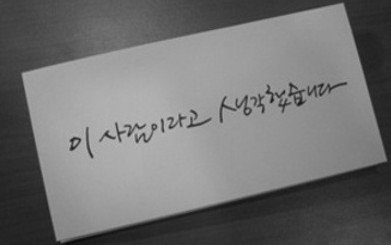 이 사람이라고 생각했습니다